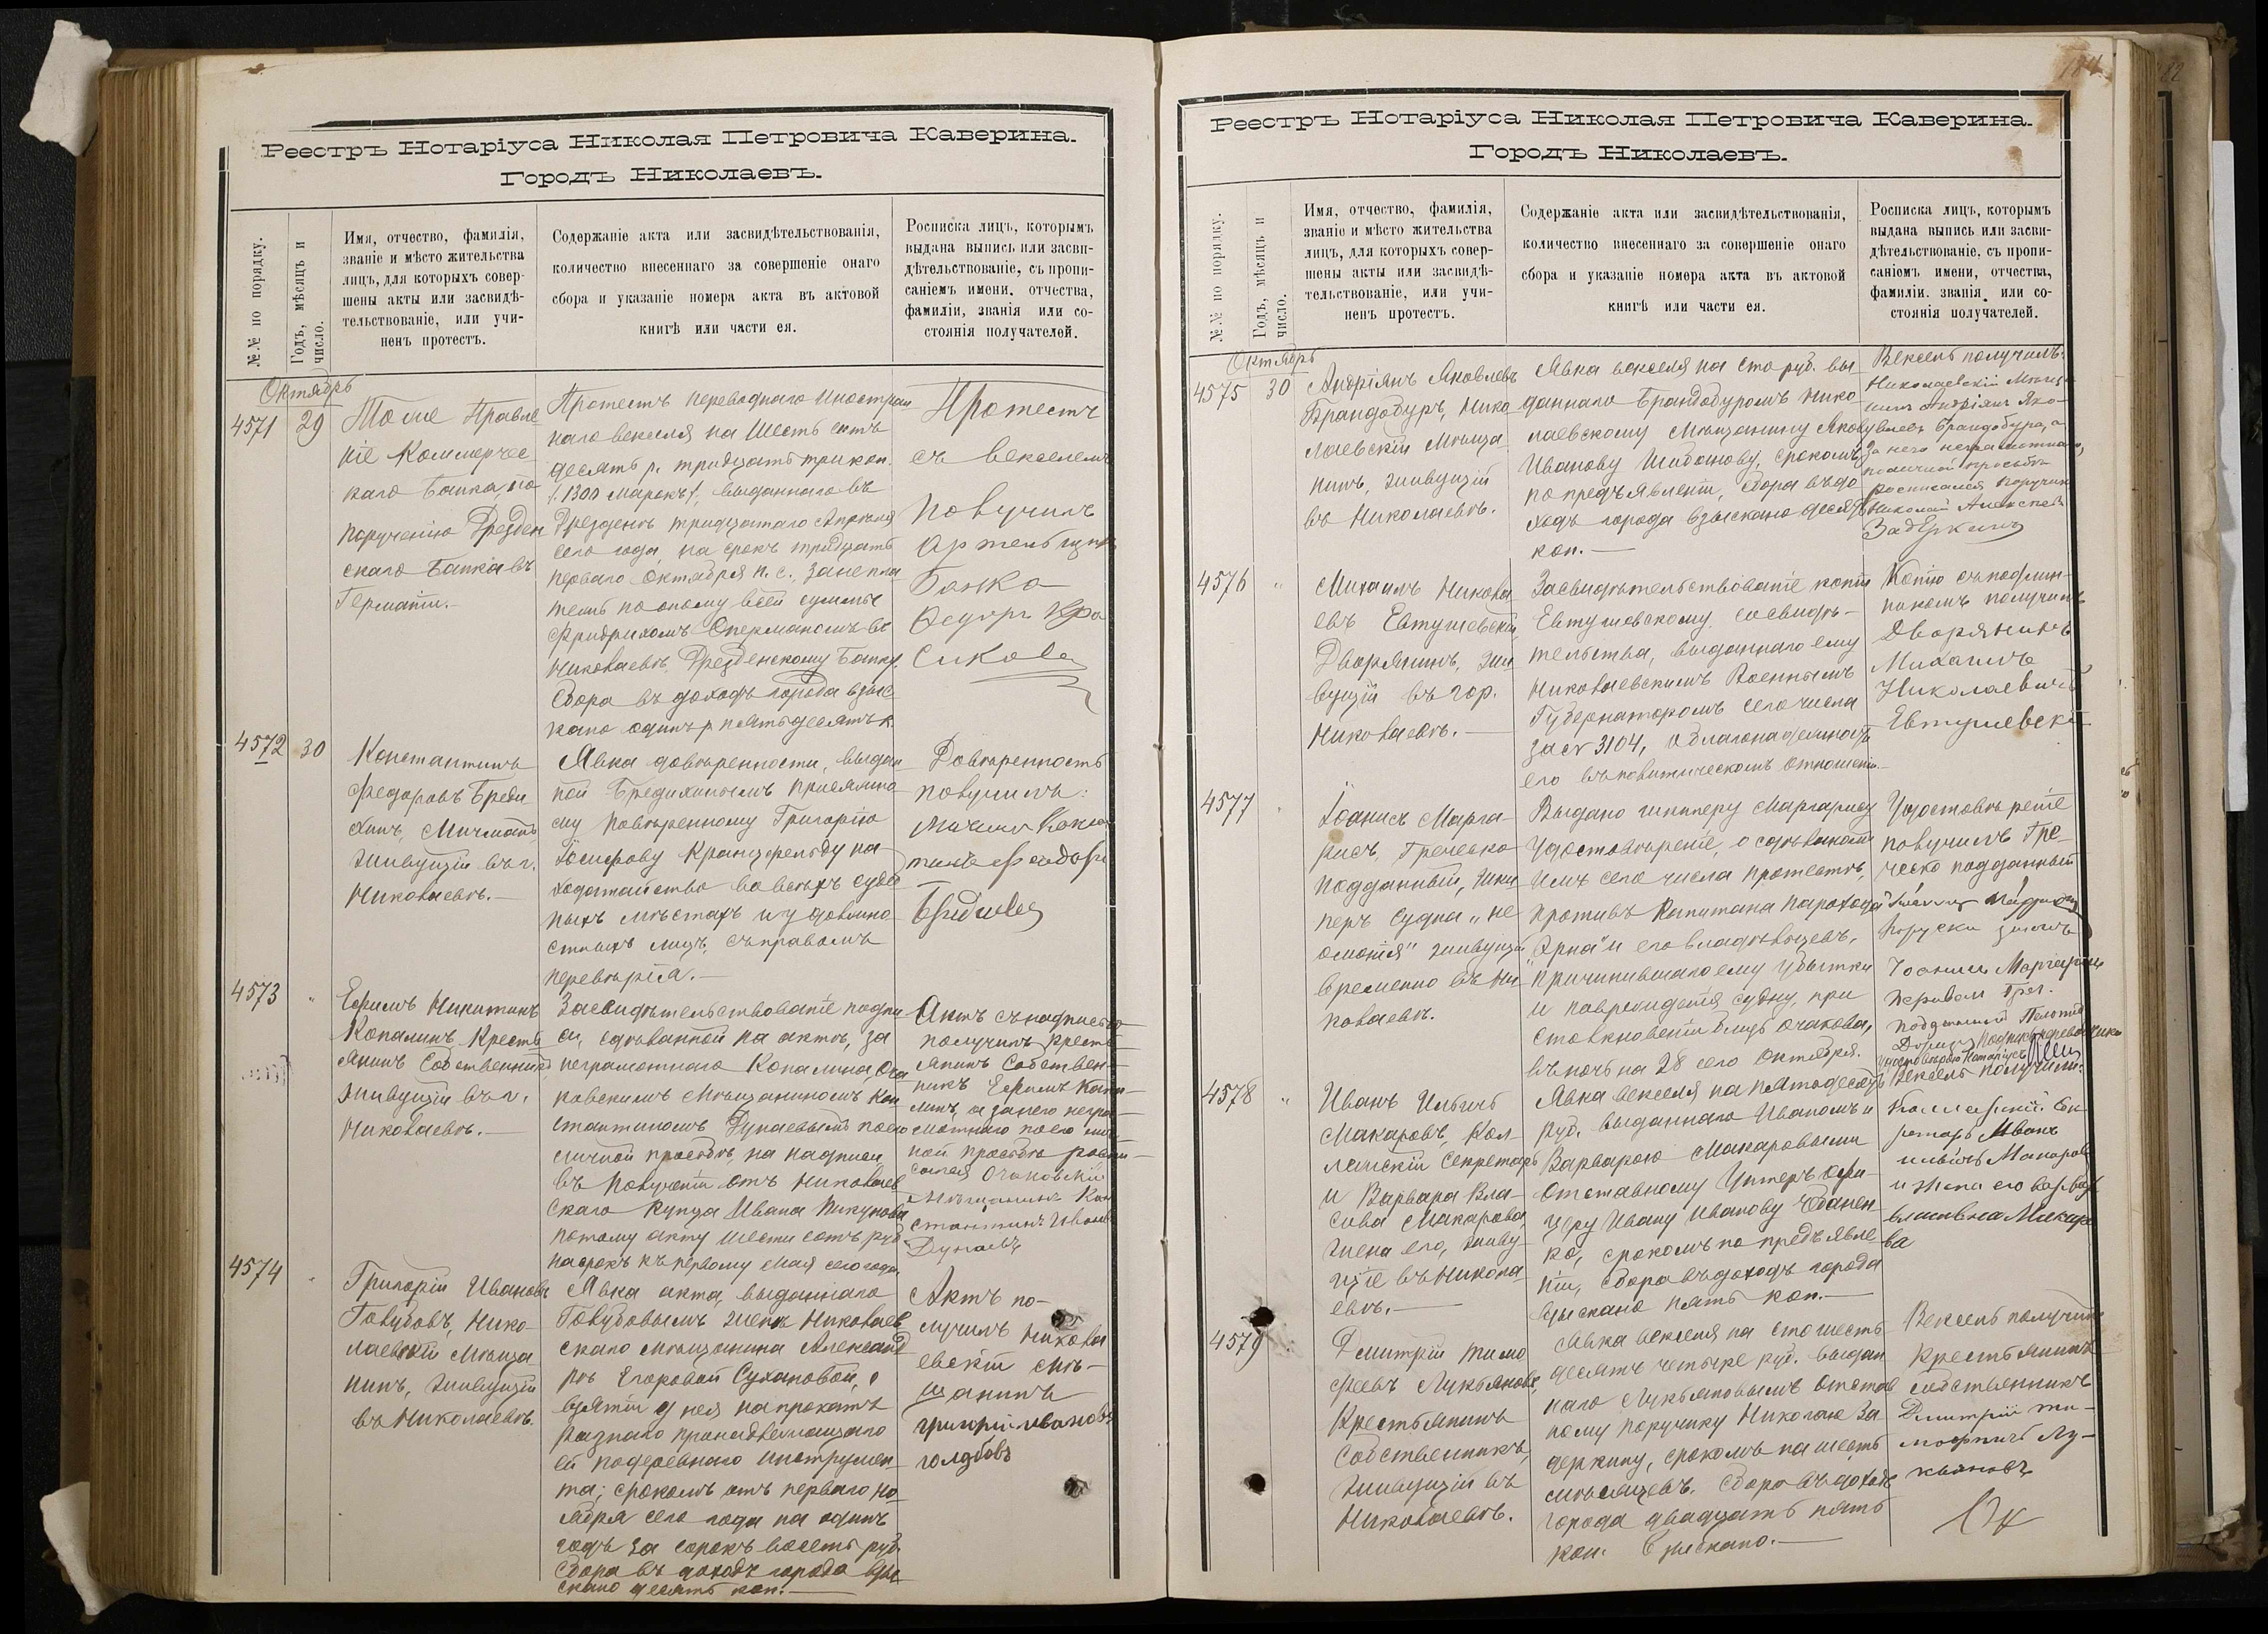 Реестръ Нотаріуса Николая Петровича Каверина.
Городъ Николаевъ.
№.№ по порядку.
Годъ, мѣсяцъ и
число.
Имя, отчество, фамилія,
званіе и мѣсто жительства
лицъ, для которыхъ совер-
шены акты или засвидѣ-
тельствованіе, или учи-
ненъ протестъ.
Содержаніе акта или засвидѣтельствованія,
количество внесеннаго за совершеніе онаго
сбора и указаніе номера акта въ актовой
книгѣ или части ея.
Росписка лицъ, которымъ
выдана выпись или засви-
дѣтельствованіе, съ пропи-
саніемъ имени, отчества,
фамиліи, званія или со-
стоянія получателей.
Октябрь
4571
29
Тоже Правле
ніе Коммерчес
каго Банка, по
порученію Дрезден
скаго Банка въ
Германіи.
Протестъ переводнаго иностран
наго векселя на шесть сотъ
десять р. тридцать три коп.
/. 1300 марокъ /, выданнаго въ
Дрезденѣ тридцатаго Апрѣля
сего года, на срокъ тридцать
перваго Октября н. с., за непла
тежъ по оному всей суммы
Фридрихомъ Оперманомъ въ
Николаевѣ, Дрезденскому Банку.
Сбора въ доходъ города взыс-
кано одинъ р. пятьдесятъ к.
Протестъ
съ векселемъ
получилъ
артельщикъ
Банка
4572
30
Константинъ
Федоровъ Бреди
хинъ, Мичманъ,
живущій въ г.
Николаевѣ.
Явка довѣренности, выдан
ной Бредихинымъ Присяжно
му повѣренному Григорію
Іосифову Кранцфельду на
ходатайство во всѣхъ судеб
ныхъ мѣстахъ и у должно
стныхъ лицъ, съ правомъ
перевѣрія.
Довѣренность
получилъ:
4573
"
Ефимъ Никитинъ
Копалинъ, Кресть
янинъ Собственникъ,
живущій въ г.
Николаевѣ.
Засвидѣтельствованіе подпи
си, сдѣланной на актѣ, за
неграмотнаго Копалина, Оча
ковскимъ Мѣщаниномъ Кон
стантиномъ Дунаевымъ по его
личной просьбѣ, на надписи
въ полученіи отъ Николаев
скаго Купца Ивана Пикунова
по тому акту шести сотъ руб.
на срокъ къ первому Мая сего года.
Актъ съ надписью
получилъ Кресть-
янинъ Собствен-
никъ Ефимъ Копа-
линъ, а за него негра-
мотнаго по его лич-
ной просьбѣ роспи-
сался Очаковскій
Мѣщанинъ Кон
стантинъ Ивановъ
Дунаевъ
4574
"
Григорій Ивановъ
Голубовъ, Нико-
лаевскій Мѣща
нинъ, живущій
въ Николаевѣ.
Явка акта, выданнаго
Голубовымъ женѣ Николаев
скаго мѣщанина Александ
рѣ Егоровой Сухановой, о
взятіи у нея на прокатъ
разнаго принадлежащаго
ей подеревнаго инструмен
та; срокомъ отъ перваго но-
ября сего года на одинъ
годъ за сорокъ восемь руб.
Сбора въ доходъ города взы
скано десять коп.
Актъ по-
лучилъ Никола
евскій мѣ-
щанинъ
григорій ивановъ
голубовъ
Реестръ Нотаріуса Николая Петровича Каверина.
Городъ Николаевъ.
№.№ по порядку.
Годъ, мѣсяцъ и
число.
Имя, отчество, фамилія,
званіе и мѣсто жительства
лицъ, для которыхъ совер-
шены акты или засвидѣ-
тельствованіе, или учи-
ненъ протестъ.
Содержаніе акта или засвидѣтельствованія,
количество внесеннаго за совершеніе онаго
сбора и указаніе номера акта въ актовой
книгѣ или части ея.
Росписка лицъ, которымъ
выдана выпись или засви-
дѣтельствованіе, съ пропи-
саніемъ имени, отчества,
фамиліи, званія или со-
стоянія получателей.
Октябрь
4575
30
Андріянъ Яковлевъ
Брандобуръ, Нико
лаевскій Мѣща
нинъ, живущій
въ Николаевѣ.
Явка векселя на сто руб. вы
даннаго Брандобуромъ Нико
лаевскому Мѣщанину Якову
Иванову, срокомъ
по предъявленіи, сбора въ до
ходъ города взыскано десять
коп.
Вексель получилъ:
Николаевскій Мѣща-
нинъ Андріянъ Яко-
влевъ Брандобуръ, а
за него неграмотнаго,
по личной просьбѣ
росписался поручикъ
Николай Алексѣев
Задеркинъ
4576
"
Михаилъ Никола
евъ Евтушевскій
Дворянинъ, жи
вущій въ гор.
Николаевѣ.
Засвидѣтельствованіе копіи
Евтушевскому свидѣ-
тельства, выданнаго ему
Николаевскимъ Военнымъ
Губернаторомъ сего числа
за № 3104, о благонадежности
его въ политическомъ отношеніи.
Копію съ подлин-
никомъ получилъ
Дворянинъ
Михаилъ
Николаевичъ
Евтушевскій
4577
"
Іоанисъ Марга-
рисъ, Греческо
подданный, шки
перъ судна „не
омонія" живущій
временно въ Ни
колаевѣ.
Выдано шкиперу Маргарису
Удостовѣреніе, о сдѣланномъ
имъ сего числа протестѣ,
противъ Капитана парохода
„Эрна" и его владѣльцевъ,
причинившаго ему убытки
и поврежденія судну, при
столкновеніи близь Очакова,
въ ночь на 28 сего Октября.
Удостовѣреніе
получилъ Гре-
ческо подданный
Іоанисъ Маргарисъ
перевелъ Грег.
подданный
4578
"
Иванъ Ильичъ
Макаровъ, Кол-
лежскій Секретарь
и Варвара Вла-
сова Макарова
жена его, живу-
щіе въ Никола
евѣ.
Явка векселя на пятьдесятъ
руб. выданнаго Иваномъ и
Варварою Макаровыми
Отставному Унтеръ Офи-
церу Ивану Иванову Жданен-
ко, срокомъ по предъявле-
ніи, сбора въ доходъ города
взыскано пять коп.
Вексель получили:
Коллежскій Сек
ретарь Иванъ
Ильичъ Макаровъ
и жена его Варвара
Власовна Макаро
ва
4579
"
Дмитрій Тимо
феевъ Лукьяновъ,
Крестьянинъ
Собственникъ,
живущій въ
Николаевѣ.
Явка векселя на сто шесть
десятъ четыре руб. выдан
наго Лукьяновымъ отстав
ному поручику Николаю За
деркину, срокомъ на шесть
мѣсяцевъ. Сбора въ доходъ
города двадцать пять
коп. взыскано.
Вексель получилъ
Крестьянинъ
собственникъ
Дмитрій Ти-
мофеичъ Лу-
кьяновъ